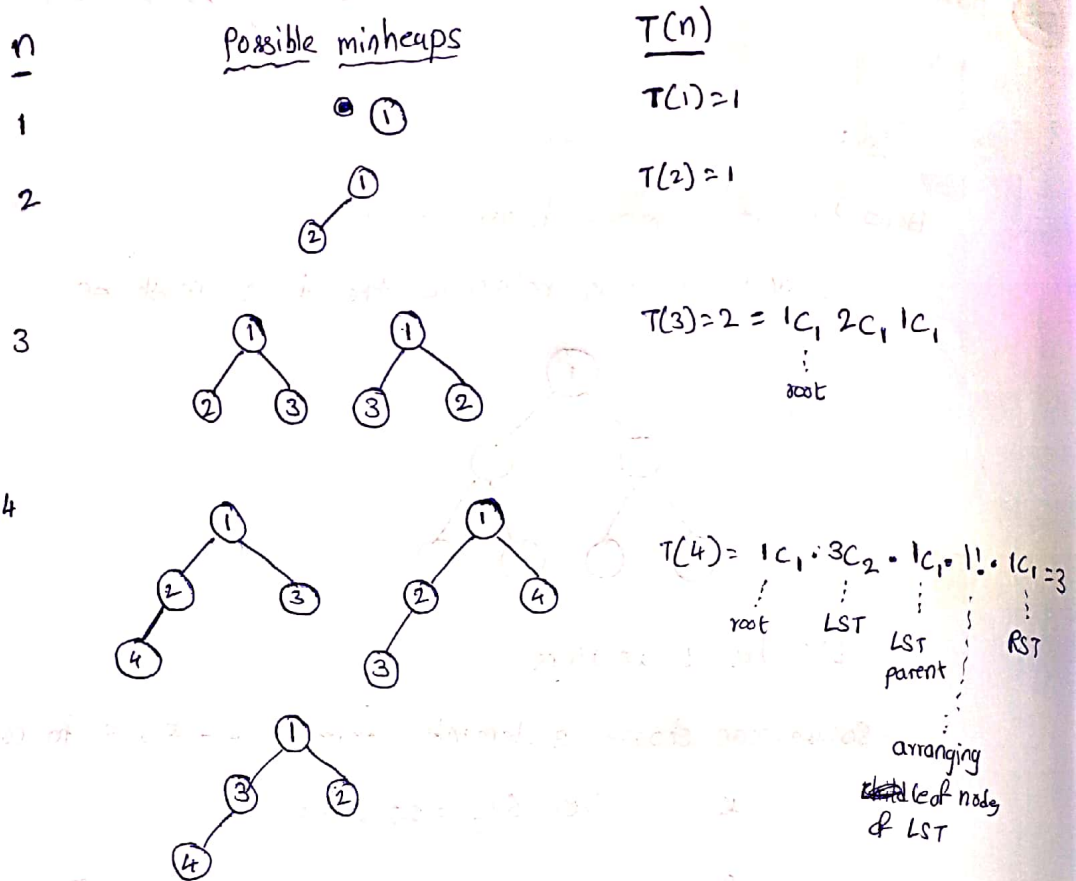 n Possible minheaps T(n)
1 1 T(1)=1
2 1 T(2)=1
2
3 1 1 T(3)=2 = 1C₁ 2C₁ 1C₁
2 3 3 2 root
4 1 1
2 3 2 4 T(4)= 1C₁ · 3C₂ · 1C₁ · 1! · 1C₁ =3
4 3 root LST LST parent RST
1 arranging
3 2 leaf nodes
4 of LST